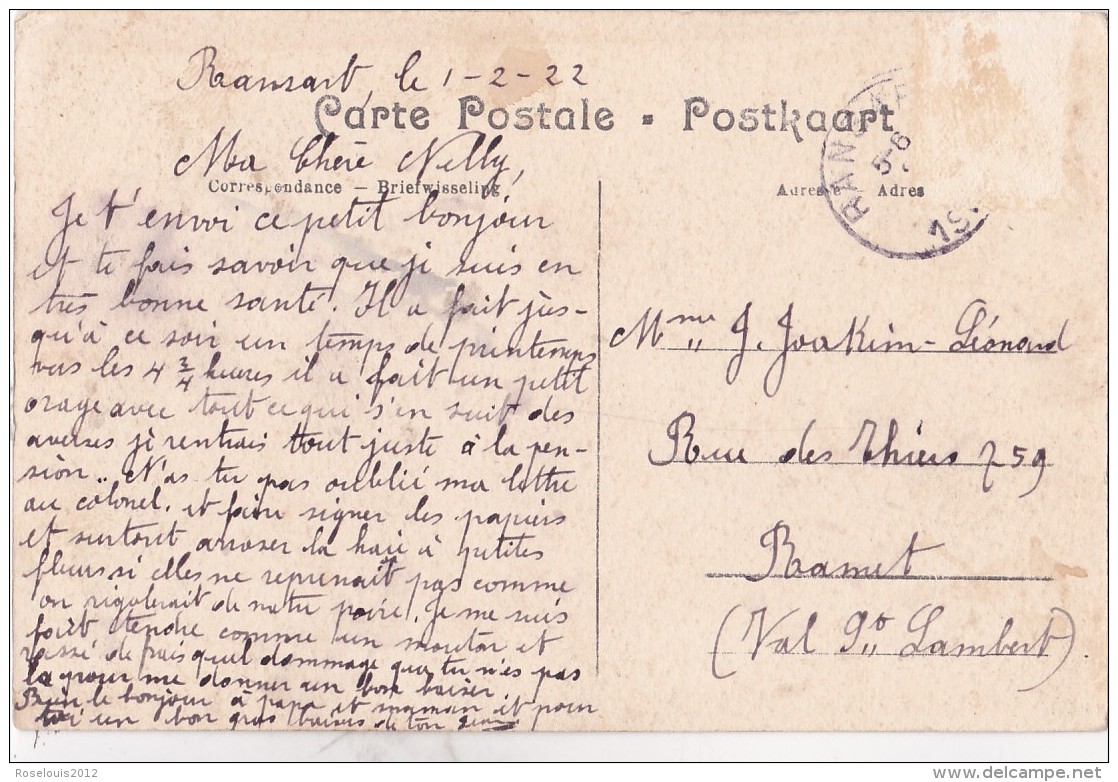 Ransart, le 1-2-22
Carte Postale - Postkaart
Ma Chère Nelly,
Correspondance — Briefwisseling
Je t'envoi ce petit bonjour
et te fais savoir que je suis en
très bonne santé. Il a fait jùs-
qu'à ce soir un temps de printemps
vers les 4 3/4 heures il a fait un petit
orage avec tout ce qui s'en suit des
averses je rentrais tout juste à la pen-
sion.. N'as tu pas oublié ma lettre
au colonel. et faire signer les papiers
et surtout arroser la haie à petites
fleurs si elles ne reprenait pas comme
on rigolerait de notre poire. Je me suis
tendre comme un mouton et
rassé de frais quel dommage que tu n'es pas
la pour me donner un bon baiser.
le bonjour à papa et maman et pour
toi un bon gros baisers de ton
Adresse Adres
RANS
5-6
19
Mme J. Joakim-Léonard
Rue des Thiers 759
Ramet
(Val St Lambert)
Roselouis2012
delcampe.net